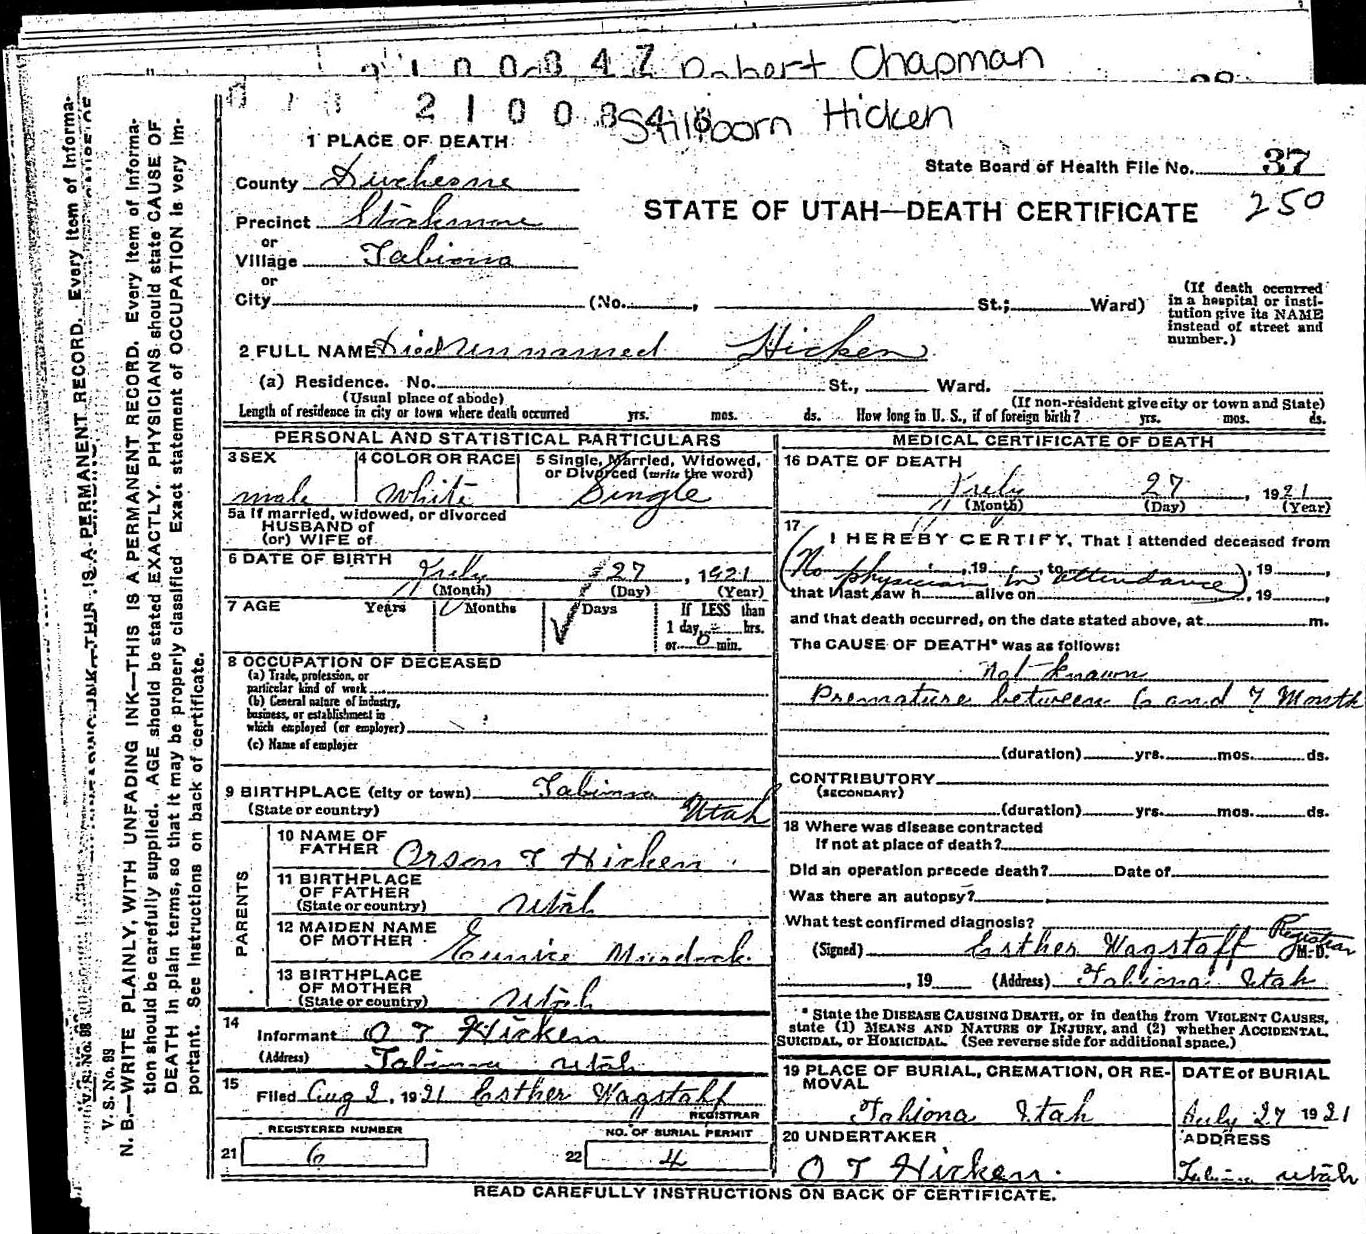 2100847 Robert Chapman
2100848 Stillborn Hicken
1 PLACE OF DEATH
State Board of Health File No. 37
County Duchesne
STATE OF UTAH—DEATH CERTIFICATE 250
Precinct
or
Village Tabiona
or
City (No. , St.; Ward)
(If death occurred
in a hospital or insti-
tution give its NAME
instead of street and
number.)
2 FULL NAME Died unnamed Hicken
(a) Residence. No. St., Ward.
(Usual place of abode) (If non-resident give city or town and State)
Length of residence in city or town where death occurred yrs. mos. ds. How long in U. S., if of foreign birth? yrs. mos. ds.
PERSONAL AND STATISTICAL PARTICULARS
3 SEX 4 COLOR OR RACE 5 Single, Married, Widowed,
or Divorced (write the word)
male White Single
5a If married, widowed, or divorced
HUSBAND of
(or) WIFE of
6 DATE OF BIRTH
July 27, 1921
(Month) (Day) (Year)
7 AGE Years Months Days If LESS than
1 day, hrs.
or 0 min.
8 OCCUPATION OF DECEASED
(a) Trade, profession, or
particular kind of work
(b) General nature of industry,
business, or establishment in
which employed (or employer)
(c) Name of employer
9 BIRTHPLACE (city or town) Tabiona
(State or country) Utah
PARENTS
10 NAME OF
FATHER Orson T Hicken
11 BIRTHPLACE
OF FATHER
(State or country) Utah
12 MAIDEN NAME
OF MOTHER Eunice Murdock
13 BIRTHPLACE
OF MOTHER
(State or country) Utah
14
Informant O T Hicken
(Address) Tabiona Utah
15
Filed Aug 2, 1921 Esther Wagstaff
REGISTRAR
REGISTERED NUMBER NO. OF BURIAL PERMIT
21 6 22 4
MEDICAL CERTIFICATE OF DEATH
16 DATE OF DEATH
July 27, 1921
(Month) (Day) (Year)
17
I HEREBY CERTIFY, That I attended deceased from
, 19 , to , 19 ,
(No physician in attendance)
that I last saw h alive on , 19 ,
and that death occurred, on the date stated above, at m.
The CAUSE OF DEATH* was as follows:
Not known
Premature between 6 and 7 Month
(duration) yrs. mos. ds.
CONTRIBUTORY
(SECONDARY)
(duration) yrs. mos. ds.
18 Where was disease contracted
If not at place of death?
Did an operation precede death? Date of
Was there an autopsy?
What test confirmed diagnosis?
(Signed) Esther Wagstaff Registrar M. D.
, 19 (Address) Tabiona Utah
* State the DISEASE CAUSING DEATH, or in deaths from VIOLENT CAUSES,
state (1) MEANS AND NATURE OF INJURY, and (2) whether ACCIDENTAL,
SUICIDAL, or HOMICIDAL. (See reverse side for additional space.)
19 PLACE OF BURIAL, CREMATION, OR RE-
MOVAL
Tabiona Utah
DATE of BURIAL
July 27 1921
20 UNDERTAKER
O T Hicken.
ADDRESS
Tabiona Utah
READ CAREFULLY INSTRUCTIONS ON BACK OF CERTIFICATE.
V. S. No. 93
N. B.—WRITE PLAINLY, WITH UNFADING INK—THIS IS A PERMANENT RECORD. Every Item of Informa-
tion should be carefully supplied. AGE should be stated EXACTLY. PHYSICIANS should state CAUSE OF
DEATH in plain terms, so that it may be properly classified Exact statement of OCCUPATION is very im-
portant. See Instructions on back of certificate.